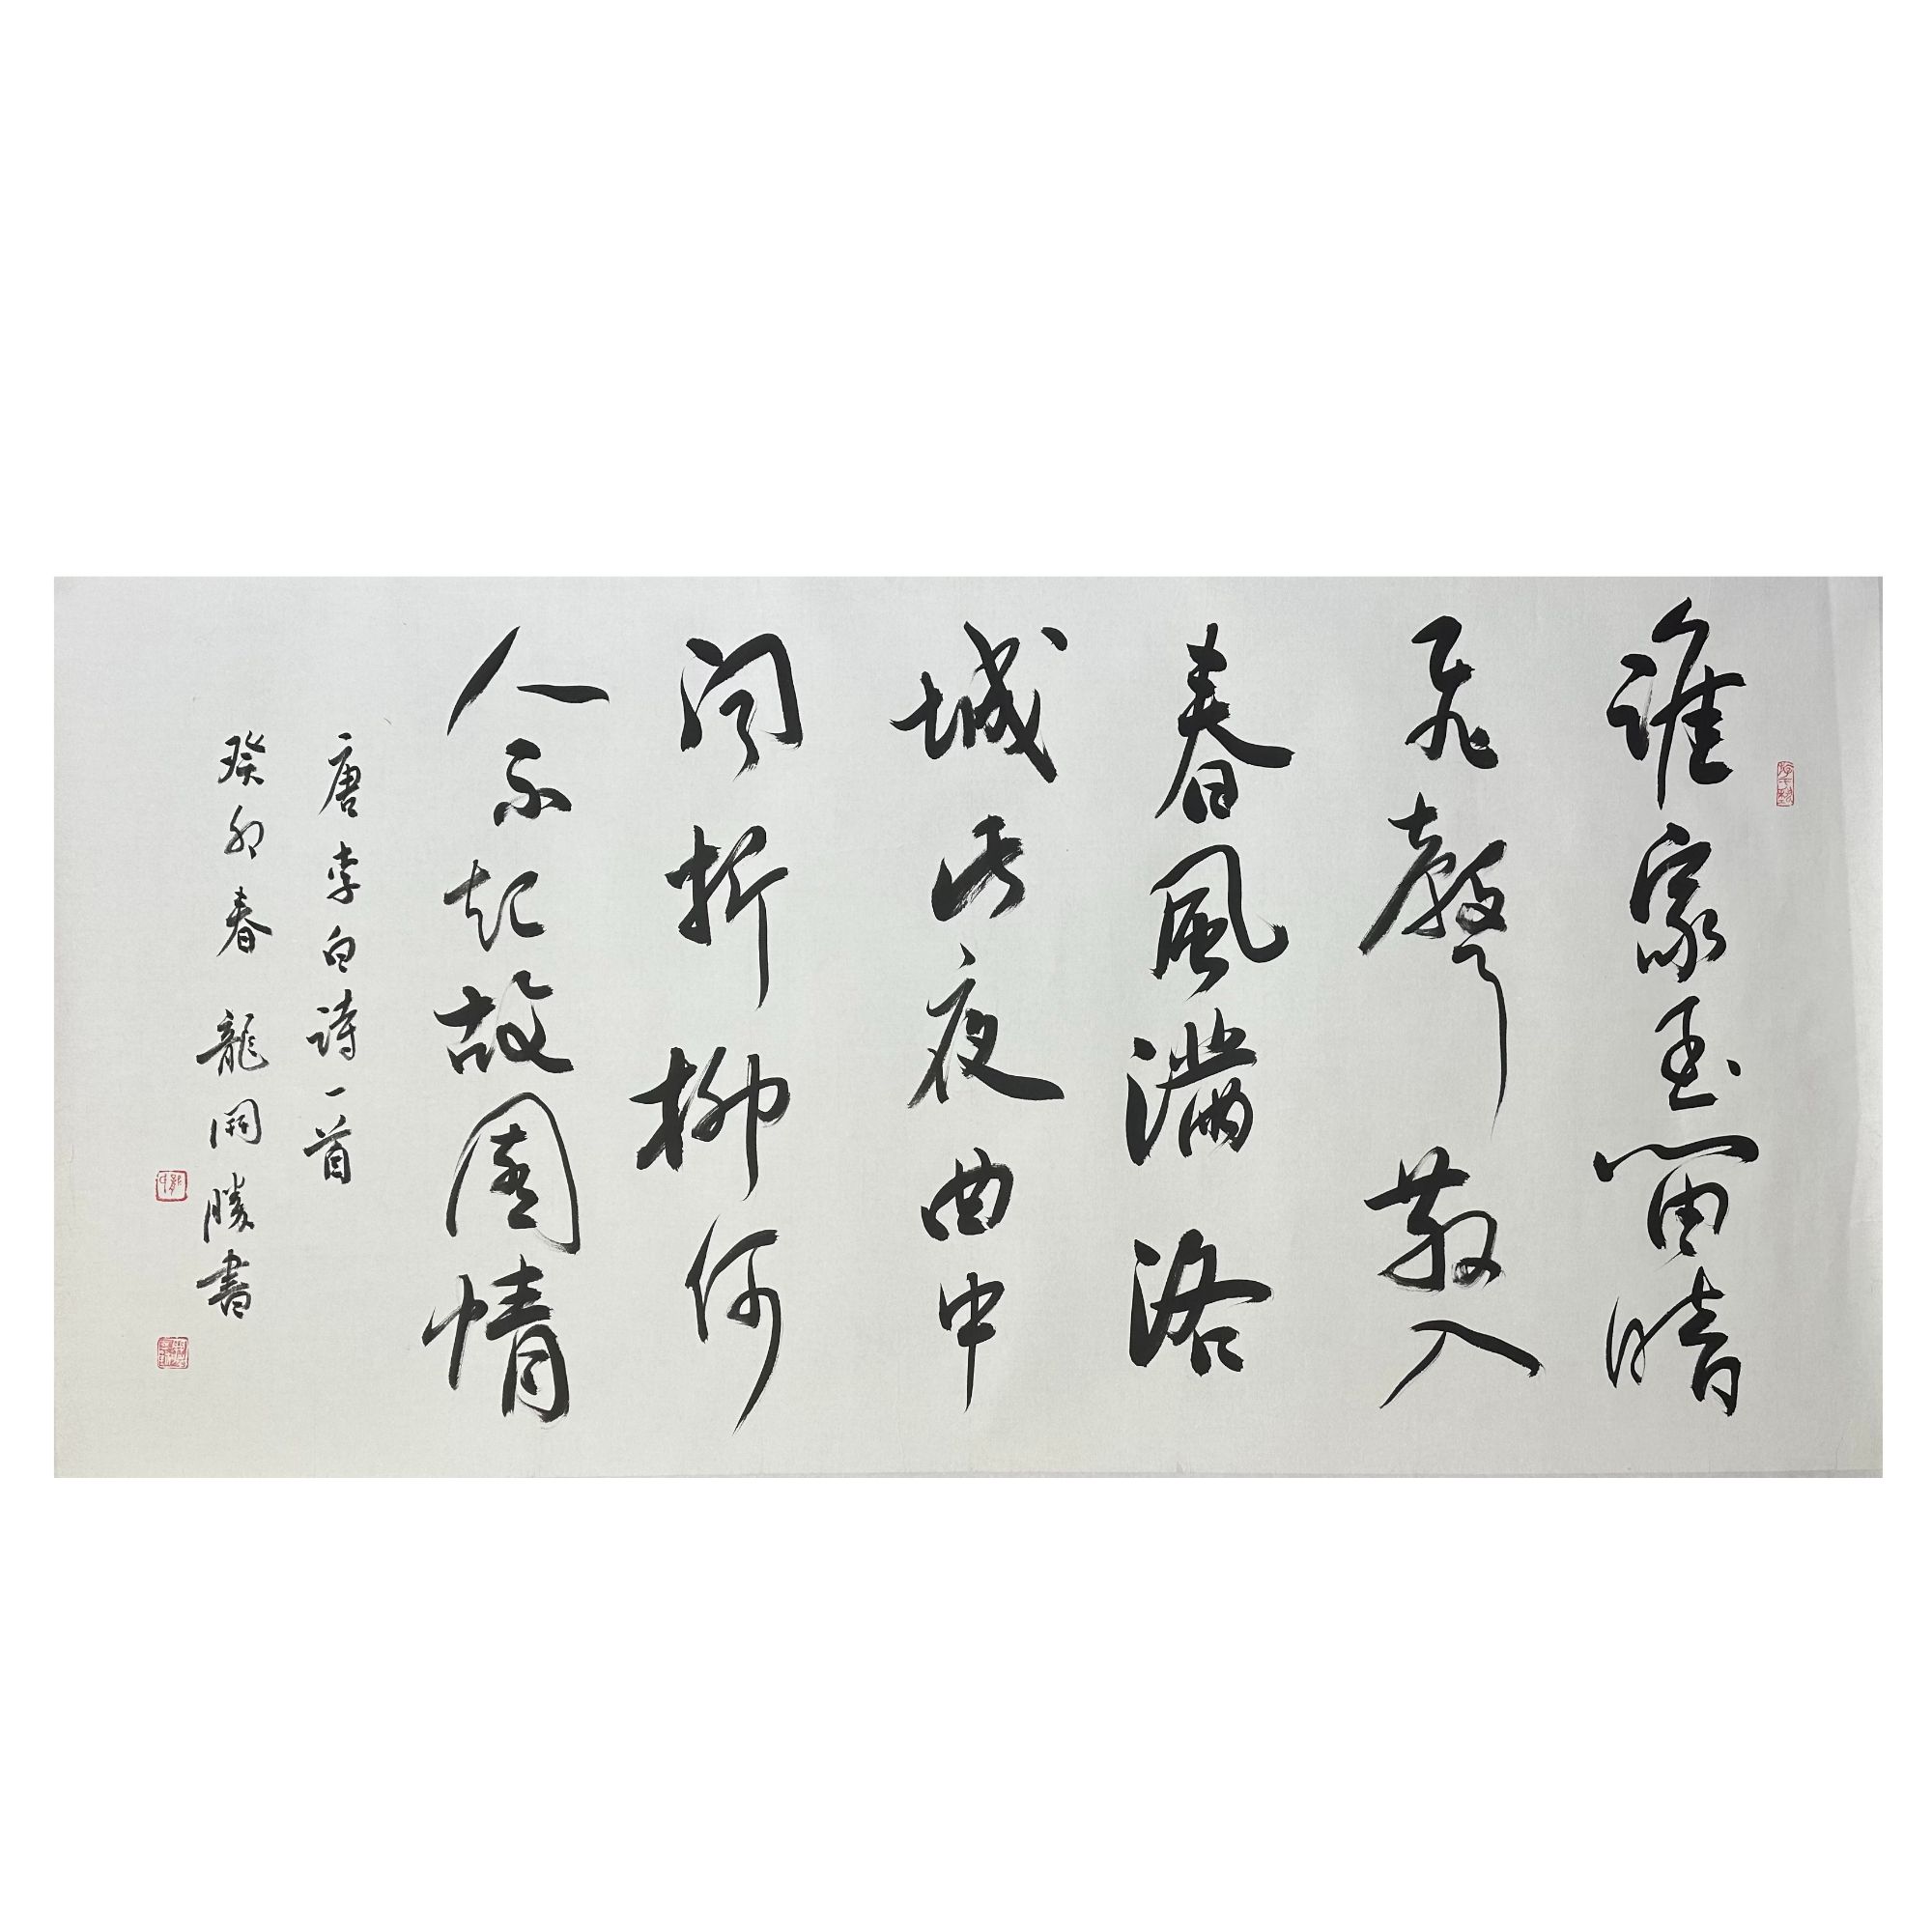 誰家玉笛暗
飛聲散入
春風滿洛
城此夜曲中
聞折柳何
人不起故園情
唐李白詩一首
癸卯春 龍開勝書